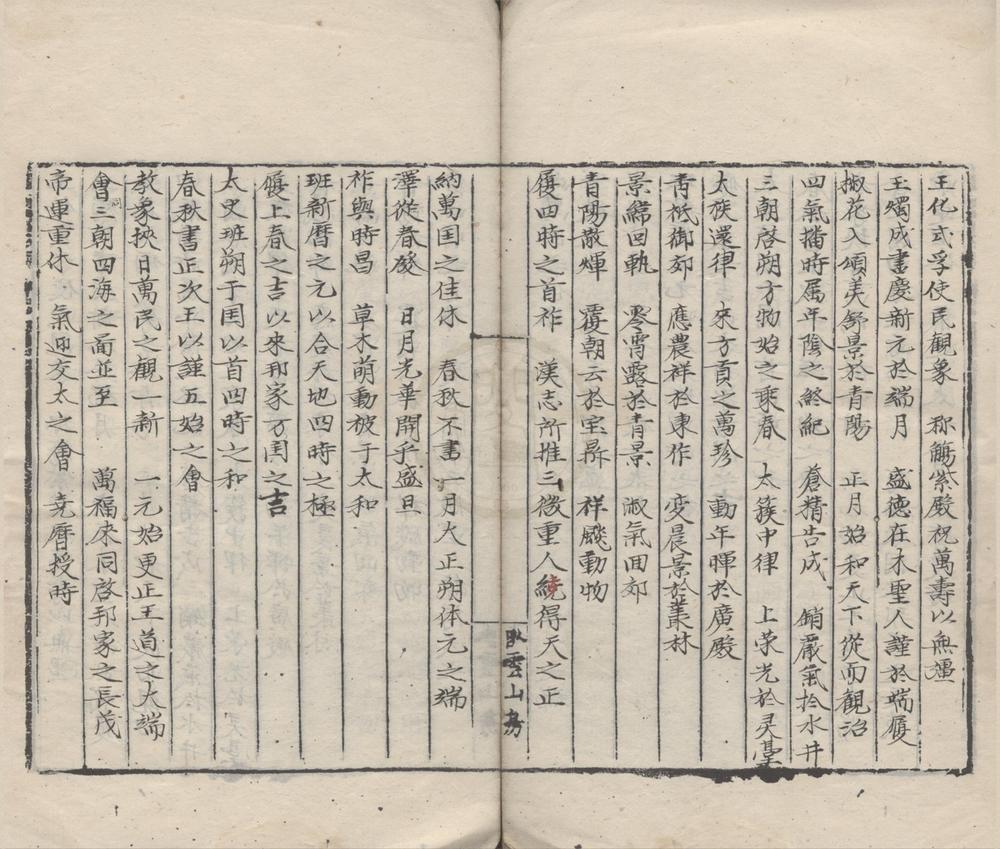 王化式孚使民觀象　称觴紫殿祝萬壽以無疆
玉燭成書慶新元於端月　盛德在木聖人謹於端履
椒花入頌美舒景於青陽　正月始和天下從而觀治
四氣播時属年陰之終紀　蒼精告成　銷嚴氣扵氷井
三朝啓朔方物始之乘春　太簇中律　上荣光於灵臺
太族還律　來方貢之萬珍　動年暉於廣殿
青祇御郊　應農祥於東作　变晨景於叢林
景緯回軌　零宵露於青景　淑氣囬郊
青陽散煇　靄朝云於宝 　祥飈動物
履四時之首祚　漢志所推三微重人統得天之正
臥雲山房
納萬囯之佳休　春秋不書一月大正朔体元之端
澤從春發　日月光華開乎盛旦
祚與時昌　草木萌動被于太和
班新暦之元以合天地四時之極
履上春之吉以來邦家万囯之吉
太史班朔于囯以首四時之和
春秋書正次王以謹五始之會
教象挾日萬民之觀一新　一元始更正王道之大端
會三朝四海之而並至　萬福來同啓邦家之長茂
帝運重休　氣迎交太之會　尭暦授時